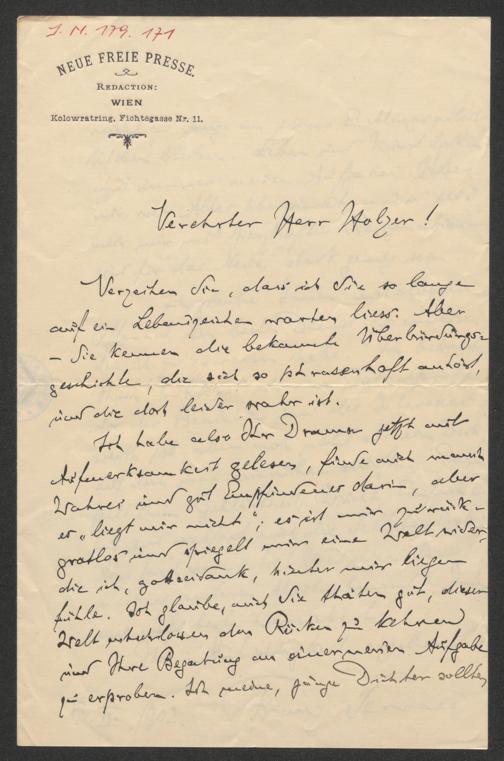 J. N. 179.171
NEUE FREIE PRESSE.
REDACTION:
WIEN
Kolowratring, Fichtegasse Nr. 11.
Verehrter Herr Holzer!
Verzeihen Sie, dass ich Sie so lange
auf ein Lebenszeichen warten liess. Aber
– Sie kennen die bekannte Überbürdungs=
geschichte, die sich so phrasenhaft anhört,
und die doch leider wahr ist.
Ich habe also Ihr Drama jetzt mit
Aufmerksamkeit gelesen, finde auch manch
Wahres und gut Empfundenes darin, aber
es „liegt mir nicht"; es ist mir zu rück-
gratlos und spiegelt mir eine Welt wider,
die ich, gottseidank, hinter mir liegen
fühle. Ich glaube, auch Sie thäten gut, dieser
Welt den Rücken zu kehren
und Ihre Begabung an einer Aufgabe
zu erproben. Ich meine, junge Dichter sollten